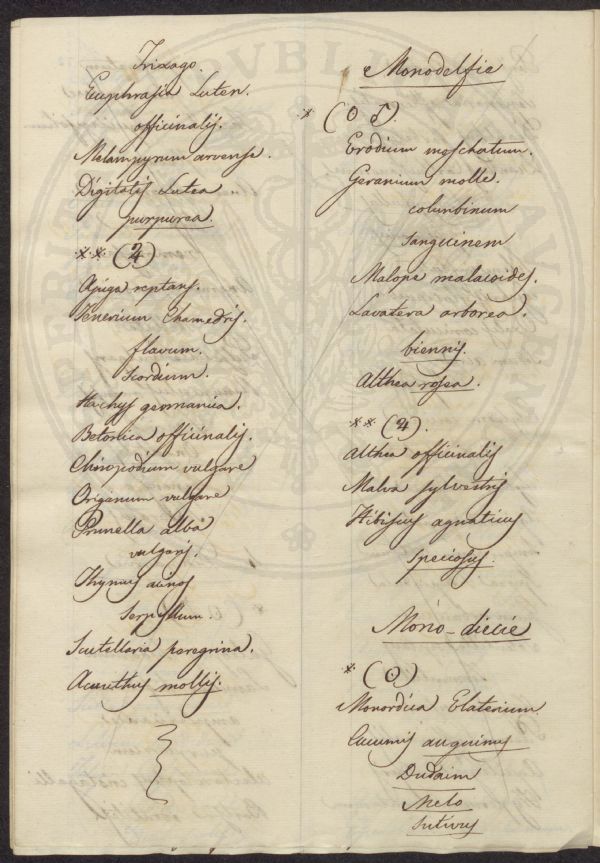 Trixago.
Euphrasia Lutea.
officinalis.
Melampyrum arvense.
Digitalis Lutea
purpurea.
** (♃)
Ajuga reptans.
Teucrium Chamedris.
flavum.
Scordium.
Stachys germanica.
Betonica officinalis.
Clinopodium vulgare
Origanum vulgare
Prunella alba
vulgaris.
Thymus acinos
Serpillum.
Scutellaria peregrina.
Acanthus mollis.
Monodelfie
* (O ♂).
Erodium moschatum.
Geranium molle.
columbinum
sanguineum
Malope malacoides.
Lavatera arborea.
biennis.
Althea rosea.
** (♃).
Althea officinalis
Malva sylvestris
Hibiscus aquaticus
speciosus.
Mono-diecie
* (O)
Momordica Elaterium.
Cucumis anguinus
Dudaim
Melo
sativus